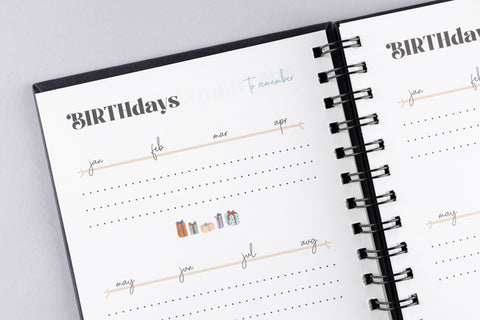 BIRTHdays
To remember
jan feb mar apr
may jun jul aug
BIRTHday
jan
may